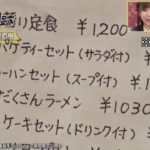 り定食 ¥1,200
パゲティーセット(サラダ付)
ーハンセット(スープ付) ¥1
だくさんラーメン ¥1030
ケーキセット(ドリンク付)